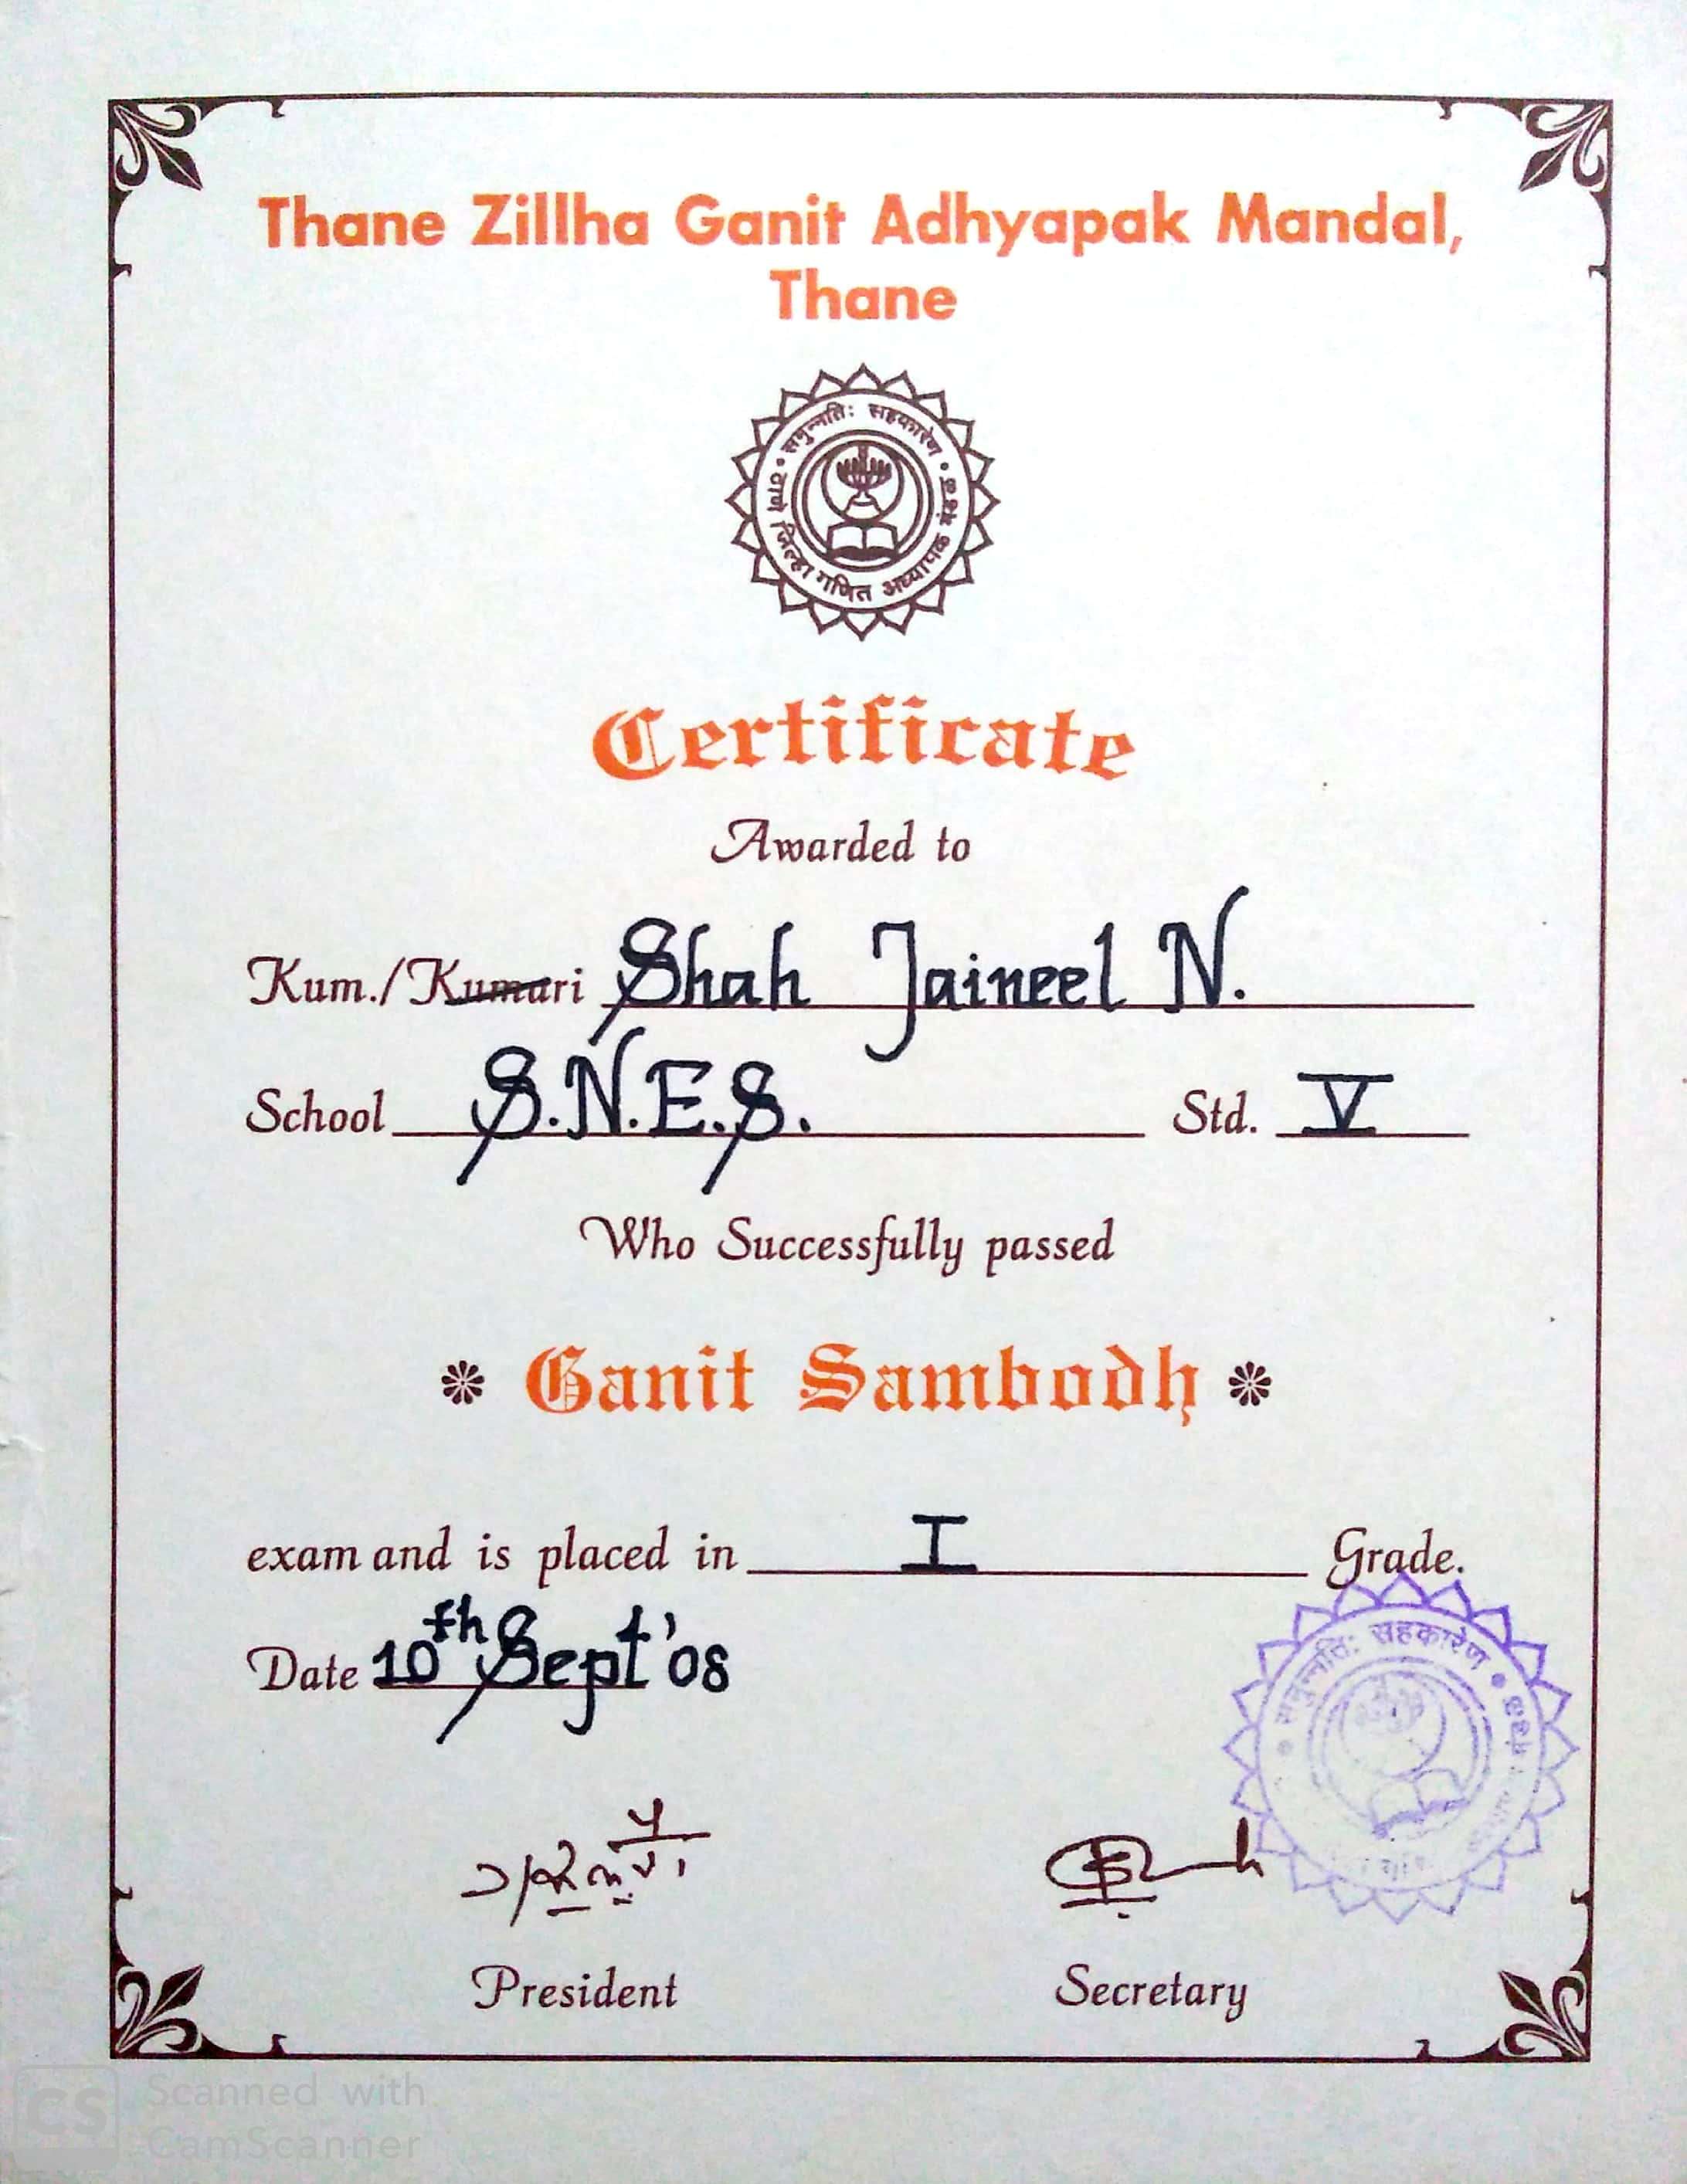 Thane Zillha Ganit Adhyapak Mandal,
Thane
समुन्नतिः सहकारेण
ठाणे जिल्हा गणित अध्यापक मंडळ
Certificate
Awarded to
Kum./Kumari Shah Jaineel N.
School S.N.E.S. Std. V
Who Successfully passed
Ganit Sambodh
exam and is placed in I Grade.
Date 10th Sept '08
समुन्नतिः सहकारेण
President Secretary
CS Scanned with
CamScanner